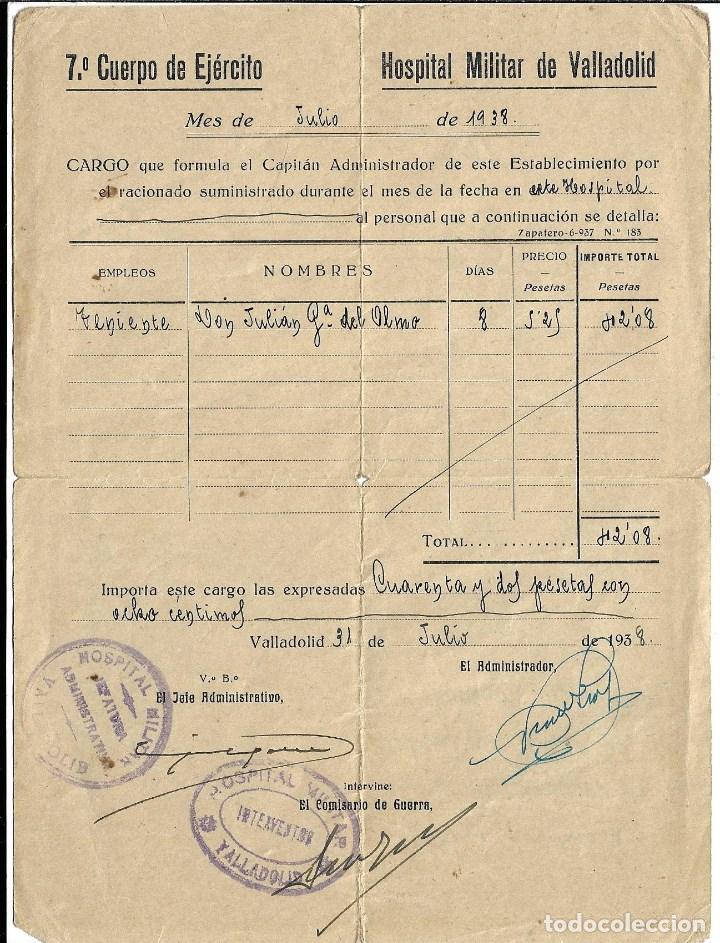 7.º Cuerpo de Ejército Hospital Militar de Valladolid
Mes de Julio de 1938.
CARGO que formula el Capitán Administrador de este Establecimiento por
el racionado suministrado durante el mes de la fecha en este Hospital
al personal que a continuación se detalla:
Zapatero-6-937 N.º 183
EMPLEOS NOMBRES DÍAS PRECIO IMPORTE TOTAL
Pesetas Pesetas
Teniente Don Julián Gª del Olmo 8 5'25 42'08
TOTAL........... 42'08.
Importa este cargo las expresadas Cuarenta y dos pesetas con
ocho céntimos
Valladolid 31 de Julio de 1938.
V.º B.º El Administrador,
El Jefe Administrativo,
HOSPITAL MILITAR VALLADOLID
JEFATURA
ADMINISTRATIVA
Intervine:
El Comisario de Guerra,
HOSPITAL MILITAR
INTERVENTOR
VALLADOLID
todocoleccion